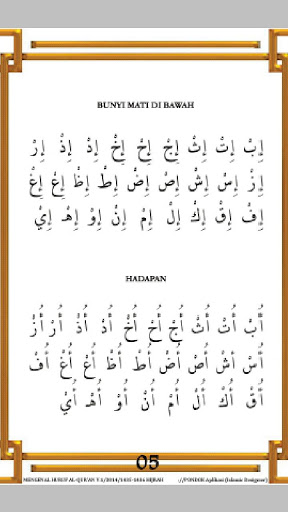 BUNYI MATI DI BAWAH
إِبْ إِتْ إِثْ إِجْ إِحْ إِخْ إِدْ إِذْ إِرْ
إِزْ إِسْ إِشْ إِصْ إِضْ إِطْ إِظْ إِعْ إِغْ
إِفْ إِقْ إِكْ إِلْ إِمْ إِنْ إِوْ إِهْـ إِيْ
HADAPAN
أُبْ أُتْ أُثْ أُجْ أُحْ أُخْ أُدْ أُذْ أُرْ أُزْ
أُسْ أُشْ أُصْ أُضْ أُطْ أُظْ أُعْ أُغْ أُفْ
أُقْ أُكْ أُلْ أُمْ أُنْ أُوْ أُهْـ أُيْ
05
MENGENAL HURUF AL-QUR'AN V.3/2014/1435-1436 HIJRAH ://PONDOK Aplikasi (Islamic Designer)